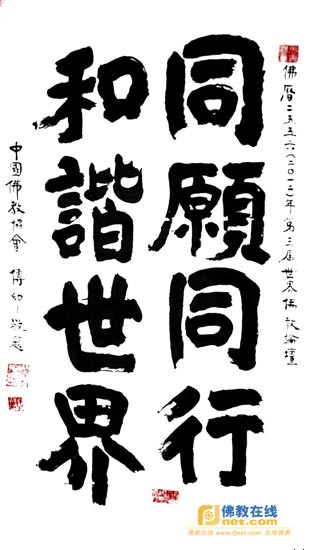 佛曆二五五六(二〇一二)年第三屆世界佛教論壇
同願同行
和諧世界
中國佛教協會 傳印敬題
佛教在线
fjnet.com